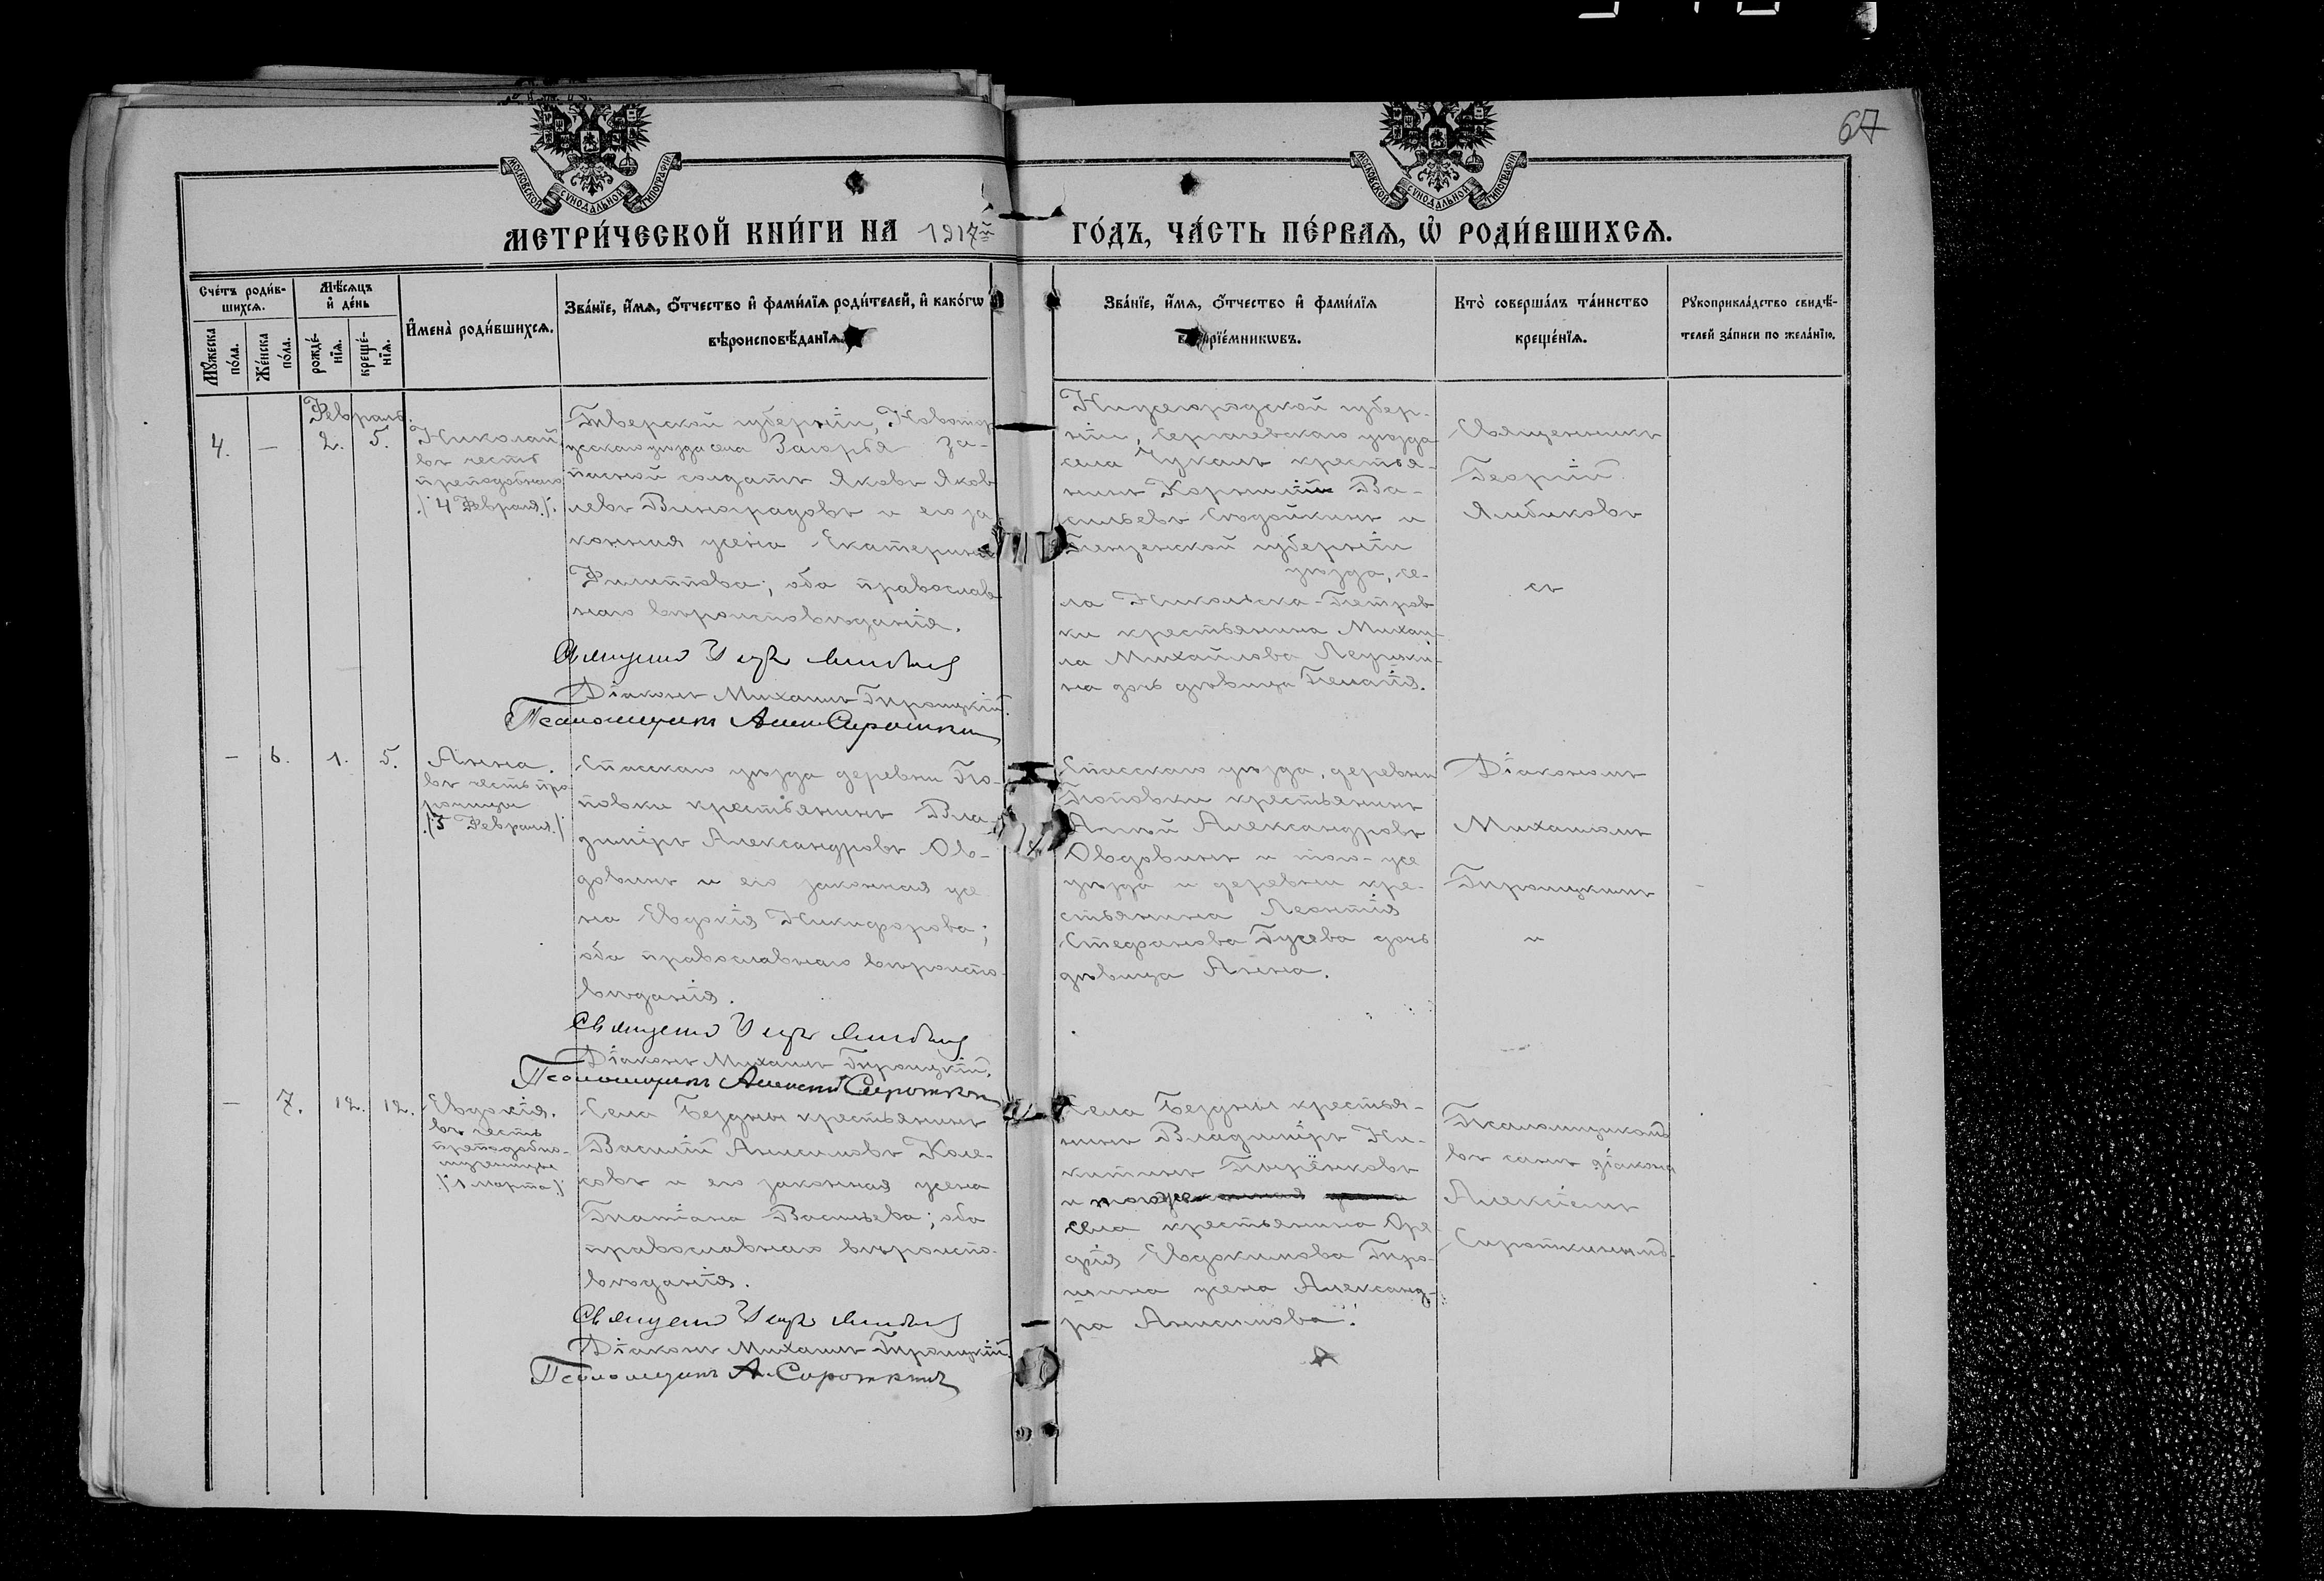 67
МОСКОВСКОЙ СѴНОДАЛЬНОЙ ТИПОГРАФІИ
МОСКОВСКОЙ СѴНОДАЛЬНОЙ ТИПОГРАФІИ
МЕТРИ́ЧЕСКОЙ КНИ́ГИ НА 1917й ГО́ДЪ, ЧА́СТЬ ПЕ́РВАЯ, Ѡ РОДИ́ВШИХСЯ.
Сче́тъ роди́в-
шихся.
Мѣ́сяцъ
и҆ де́нь
Мꙋ́жеска
по́ла.
Же́нска
по́ла.
рожде́-
нїѧ.
креще́-
нїѧ.
И҆мена̀ роди́вшихся.
Зва́нїе, и҆́мѧ, ѻ҆́тчество и҆ фами́лїѧ роди́телей, и҆ како́гѡ
вѣроисповѣ́данїѧ.
Зва́нїе, и҆́мѧ, ѻ҆́тчество и҆ фами́лїѧ
воспрїе́мникѡвъ.
Кто̀ соверша́лъ та́инство
креще́нїѧ.
Рꙋкоприкла́дство свидѣ́-
телей за́писи по жела́нїю.
Февраль.
4.
—
2.
5.
Николай
въ честь
преподобнаго
/4 Февраля/.
Тверской губерніи, Новотор
жскаго уѣзда села Загорья за-
пасной солдатъ Яковъ Яков
левъ Виноградовъ и его за
конная жена Екатерина
Филиппова; оба православ
наго вѣроисповѣданія.
Діаконъ Михаилъ Троицкій.
Псаломщикъ Алек Сироткин
Нижегородской губер-
ніи, Сергачевскаго уѣзда
села Чукалъ крестья-
нинъ Корнилій Ва-
сильевъ Сѣдойкинъ и
Пензенской губерніи
уѣзда, се-
ла Никольска-Петров
ки крестьянина Михаи-
ла Михайлова
на дочь дѣвица Пелагія.
Священникъ
Георгій
Ялбиковъ
съ
—
6.
1.
5.
Анна.
въ честь про
рочицы
/3 Февраля./
Спасскаго уѣзда деревни По-
повки крестьянинъ Вла-
диміръ Александровъ Ов-
довинъ и его законная же
на Евдокія Никифорова;
оба православнаго вѣроиспо-
вѣданія.
Діаконъ Михаилъ Троицкій.
Псаломщикъ Алексій Сироткин
Спасскаго уѣзда, деревни
Поповки крестьянинъ
Александровъ
Овдовинъ и того-же
уѣзда и деревни кре-
стьянина Леонтія
Стефанова Гусева дочь
дѣвица Анна.
Діакономъ
Михаиломъ
Троицкимъ
и
—
7.
12.
12.
Евдокія.
въ честь
преподобно-
мученицы
/1 марта/
Села Бездны крестьянинъ
Василій Анисимовъ Коле-
совъ и его законная жена
Татіана Васильева; оба
православнаго вѣроиспо-
вѣданія.
Діаконъ Михаилъ Троицкій.
Псаломщикъ А. Сироткинъ
Села Бездны крестья-
нинъ Владиміръ Ни-
китинъ
и тогоже
села крестьянина Оре
фія Евдокимова Тро-
шина жена Александ-
ра Анисимова.
Псаломщикомъ
въ санѣ діакона
Алексіемъ
Сироткинымъ.